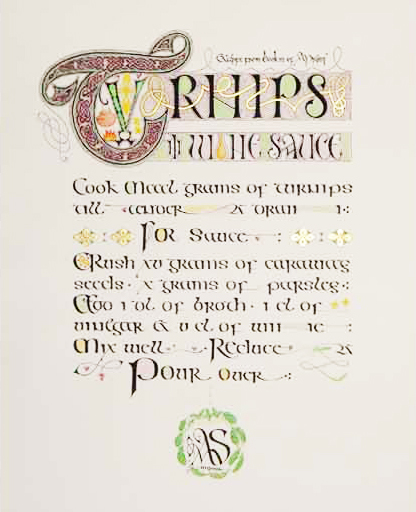 TURNIPS
in WINE SAUCE
Cook Mccl grams of turnips
till tender & drain :
For Sauce :
Crush xv grams of caraway
seeds · x grams of parsley :
Add 1 dl of broth · 1 cl of
vinegar & v cl of wine :
Mix well · Reduce &
Pour over :